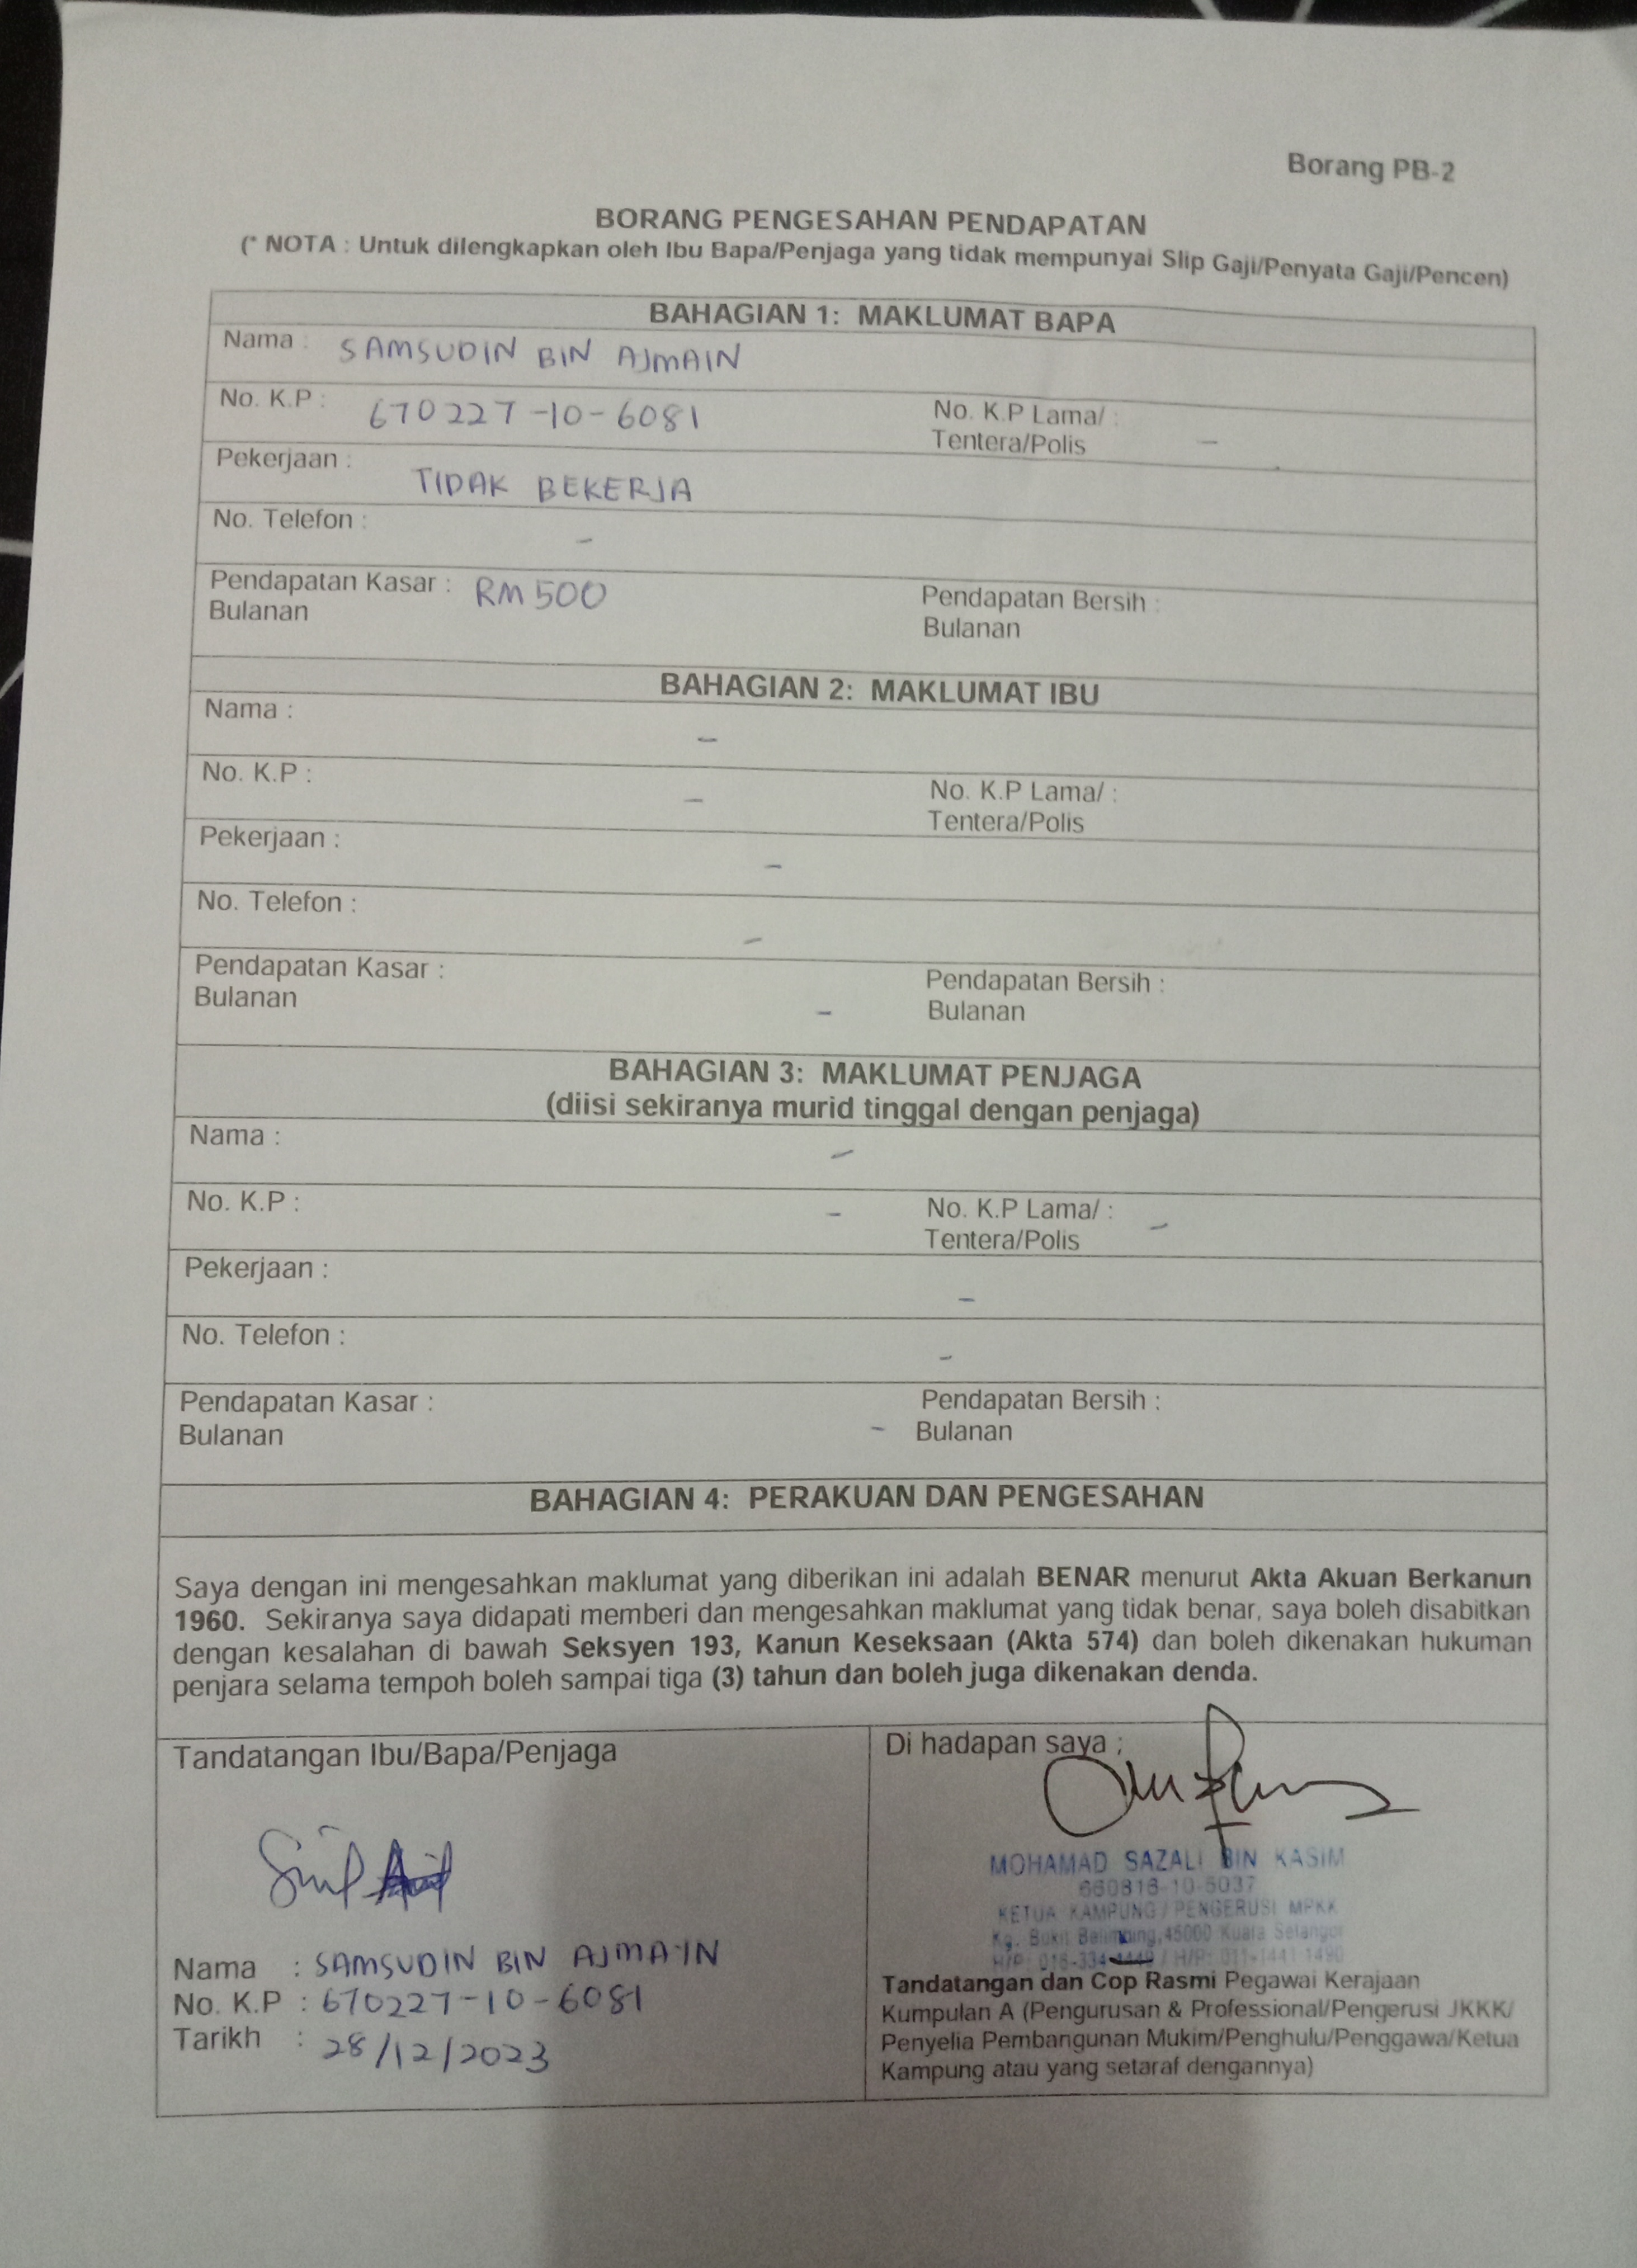 Borang PB-2
BORANG PENGESAHAN PENDAPATAN
(* NOTA : Untuk dilengkapkan oleh Ibu Bapa/Penjaga yang tidak mempunyai Slip Gaji/Penyata Gaji/Pencen)
BAHAGIAN 1: MAKLUMAT BAPA
Nama : SAMSUDIN BIN AJMAIN
No. K.P : 670227-10-6081 No. K.P Lama/ :
Tentera/Polis -
Pekerjaan : TIDAK BEKERJA
No. Telefon : -
Pendapatan Kasar : RM 500 Pendapatan Bersih :
Bulanan Bulanan
BAHAGIAN 2: MAKLUMAT IBU
Nama : -
No. K.P : - No. K.P Lama/ :
Tentera/Polis
Pekerjaan : -
No. Telefon : -
Pendapatan Kasar : Pendapatan Bersih :
Bulanan - Bulanan
BAHAGIAN 3: MAKLUMAT PENJAGA
(diisi sekiranya murid tinggal dengan penjaga)
Nama : -
No. K.P : - No. K.P Lama/ : -
Tentera/Polis
Pekerjaan : -
No. Telefon : -
Pendapatan Kasar : Pendapatan Bersih :
Bulanan - Bulanan
BAHAGIAN 4: PERAKUAN DAN PENGESAHAN
Saya dengan ini mengesahkan maklumat yang diberikan ini adalah BENAR menurut Akta Akuan Berkanun
1960. Sekiranya saya didapati memberi dan mengesahkan maklumat yang tidak benar, saya boleh disabitkan
dengan kesalahan di bawah Seksyen 193, Kanun Keseksaan (Akta 574) dan boleh dikenakan hukuman
penjara selama tempoh boleh sampai tiga (3) tahun dan boleh juga dikenakan denda.
Tandatangan Ibu/Bapa/Penjaga
Nama : SAMSUDIN BIN AJMAIN
No. K.P : 670227-10-6081
Tarikh : 28/12/2023
Di hadapan saya ;
MOHAMAD SAZALI BIN KASIM
660816-10-5037
KETUA KAMPUNG / PENGERUSI MPKK
Kg. Bukit Belimbing, 45000 Kuala Selangor
H/P: 016-334 / H/P: 011-1441 1490
Tandatangan dan Cop Rasmi Pegawai Kerajaan
Kumpulan A (Pengurusan & Professional/Pengerusi JKKK/
Penyelia Pembangunan Mukim/Penghulu/Penggawa/Ketua
Kampung atau yang setaraf dengannya)